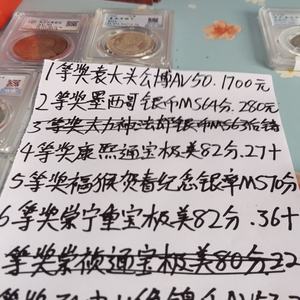 1等奖袁大头公博AV50.1700元
2等奖墨西哥银币MS64分.280元
3等奖大力神法郎银币MS63后铸
4等奖康熙通宝极美82分.27+
5等奖福猴贺春纪念银章MS70分
6等奖崇宁重宝极美82分.36+
等奖崇祯通宝极美80分22